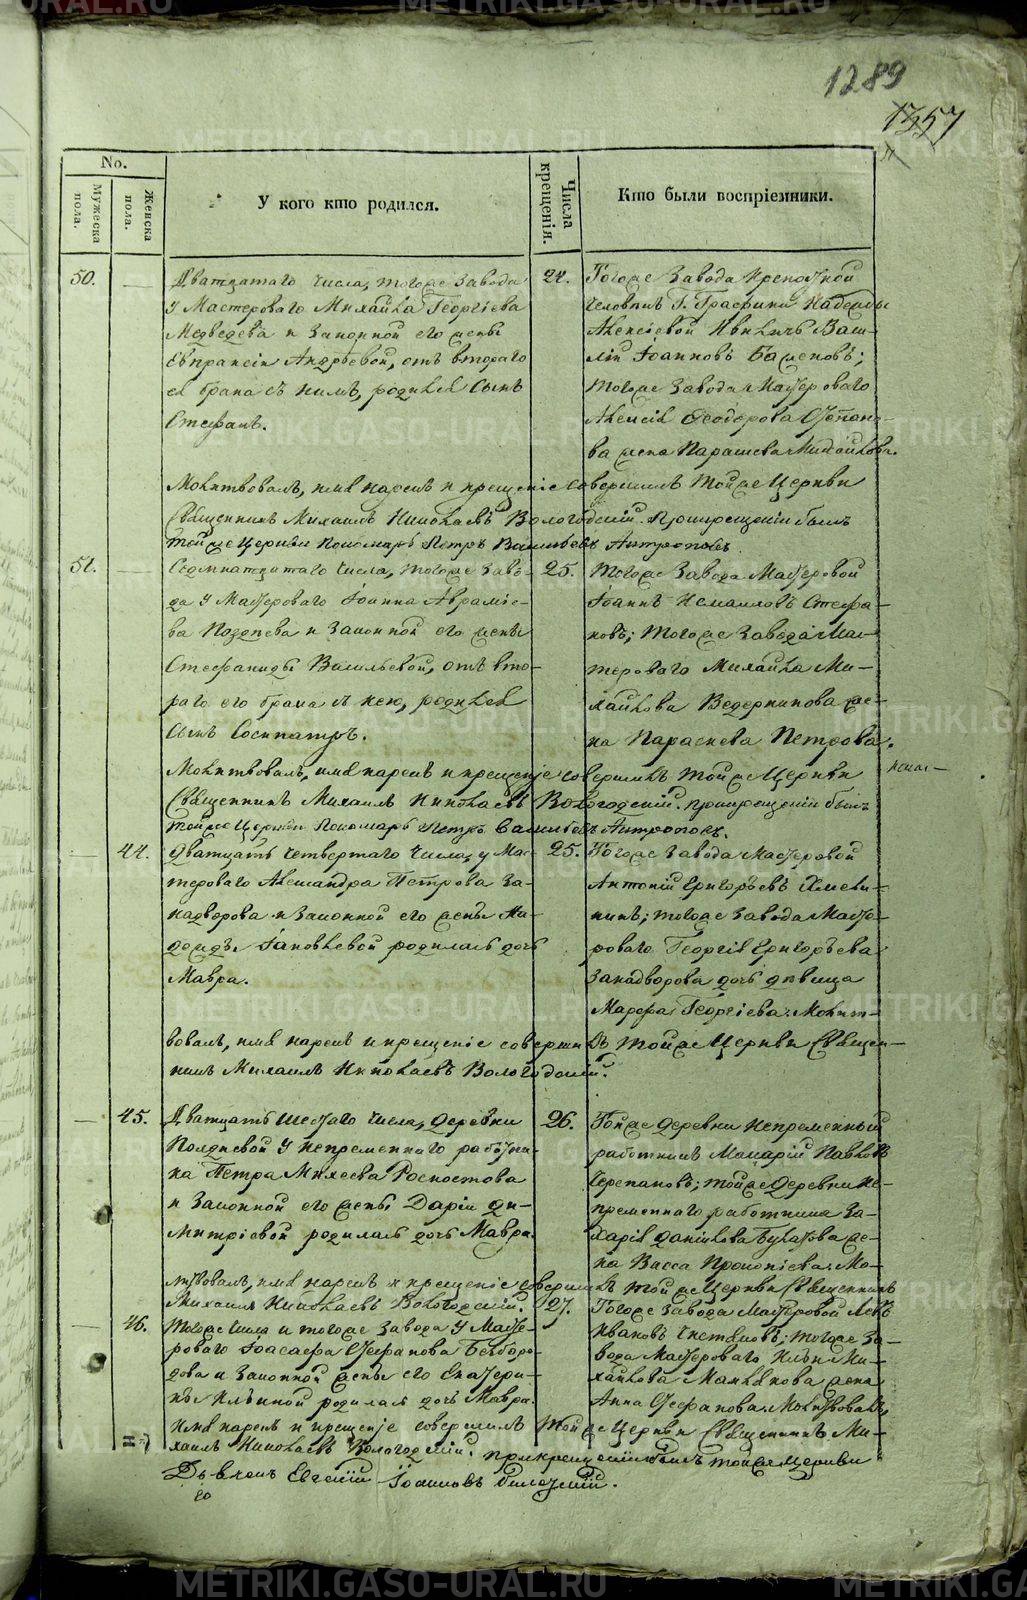 1289
1357
No.
Мужеска пола.
Женска пола.
У кого кто родился.
Числа крещенія.
Кто были воспріемники.
50.
Дватцатаго числа, тогоже завода
у Мастероваго Михайла Георгіева
Медведева и законной его жены
Евпраксіи Андреевой, отъ втораго
ея брака съ нимъ, родился сынъ
Стефанъ.
24.
Тогоже завода крепостной
человекъ Г. Графини Надежды
Алексіевой
Іоанновъ
тогоже завода Мастероваго
Алексія Феодорова Степано-
ва жена Параскева Михайлова.
Молитвовалъ, имя нарекъ и крещеніе совершилъ тойже Церкви
Священникъ Михаилъ Николаевъ Вологодскій. При крещеніи былъ
тойже Церкви Пономарь Петръ Васильевъ Антроповъ.
51.
Седмнатцатаго числа, тогоже заво-
да у Мастероваго Іоанна Авраміе-
ва Позднева и законной его жены
Стефаниды Васильевой, отъ вто-
раго его брака съ нею, родился
сынъ Сосипатръ.
25.
тогоже завода Мастеровой
Іоаннъ Измаиловъ Стефа-
новъ; тогоже завода Мас-
тероваго Михайла Ми-
хайлова Ведерникова же-
на Параскева Петрова.
Молитвовалъ, имя нарекъ и крещеніе совершилъ тойже Церкви
Священникъ Михаилъ Николаевъ Вологодскій. При крещеніи былъ
тойже Церкви Пономарь Петръ Васильевъ Антроповъ.
44.
Дватцать четвертаго числа, у Мас-
тероваго Александра Петрова За-
надворова и законной его жены На-
дежды Іаковлевой родилась дочь
Мавра.
25.
Тогоже завода Мастеровой
Антоній Григорьевъ Хмеви-
нинъ; тогоже завода Масте-
роваго Георгія Григорьева
Занадворова дочь девица
Марфа Георгіева. Молит-
вовалъ, имя нарекъ и крещеніе совершилъ тойже Церкви Священ-
никъ Михаилъ Николаевъ Вологодскій.
45.
Дватцать шестаго числа, деревни
Полдневой у непременнаго работни-
ка Петра Михеева Роспостова
и законной его жены Даріи Ди-
митріевой родилась дочь Мавра.
26.
Тойже деревни непременный
работникъ Макарій Павловъ
Черепановъ; тойже деревни не-
пременнаго работника За-
харія Данилова Булатова же-
на Васса Прокопіева. Мо-
литвовалъ, имя нарекъ и крещеніе совершилъ тойже Церкви Священникъ
Михаилъ Николаевъ Вологодскій.
46.
тогоже числа и тогоже завода у Масте-
роваго Іоасафа Стефанова Безборо-
дова и законной жены его Екатери-
ны Ильиной родилась дочь Мавра.
27.
Тогоже завода Мастеровой Левъ
Ивановъ Чистяковъ; тогоже за-
вода Мастероваго Ильи Ми-
хайлова жена
Анна Стефанова. Молитвовалъ,
имя нарекъ и крещеніе совершилъ тойже Церкви Священникъ Ми-
хаилъ Николаевъ Вологодскій. При крещеніи былъ тойже Церкви
Дьячекъ Евгеній Іоанновъ
METRIKI.GASO-URAL.RU